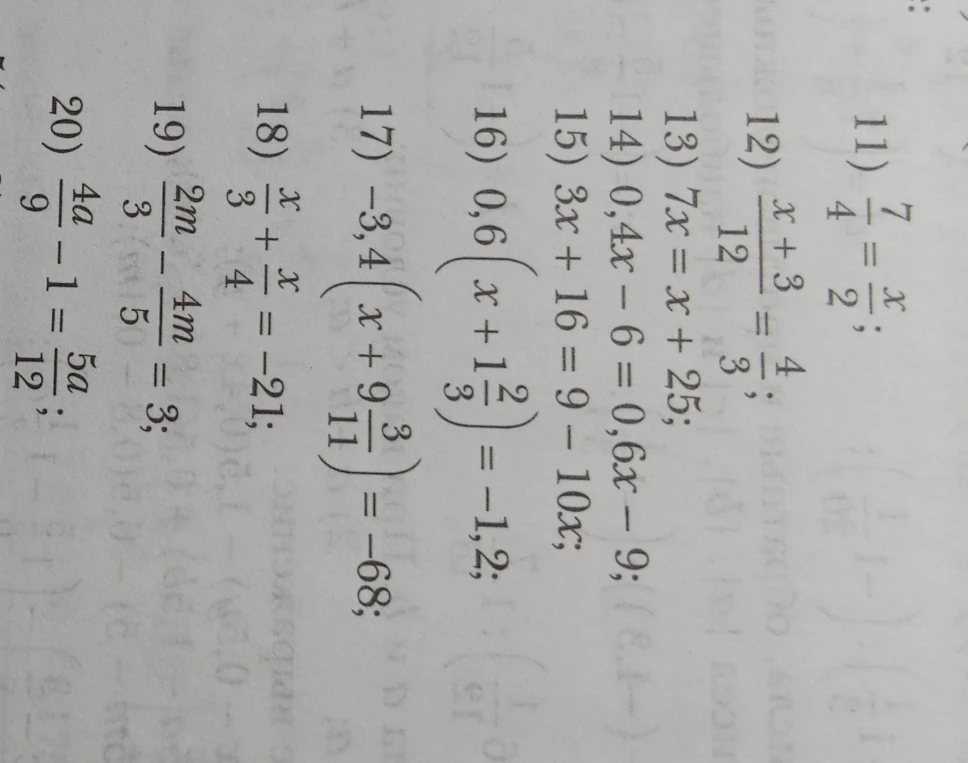 11) 7/4 = x/2;
12) (x + 3)/12 = 4/3;
13) 7x = x + 25;
14) 0,4x − 6 = 0,6x − 9;
15) 3x + 16 = 9 − 10x;
16) 0,6(x + 1 2/3) = −1,2;
17) −3,4(x + 9 3/11) = −68;
18) x/3 + x/4 = −21;
19) 2m/3 − 4m/5 = 3;
20) 4a/9 − 1 = 5a/12;